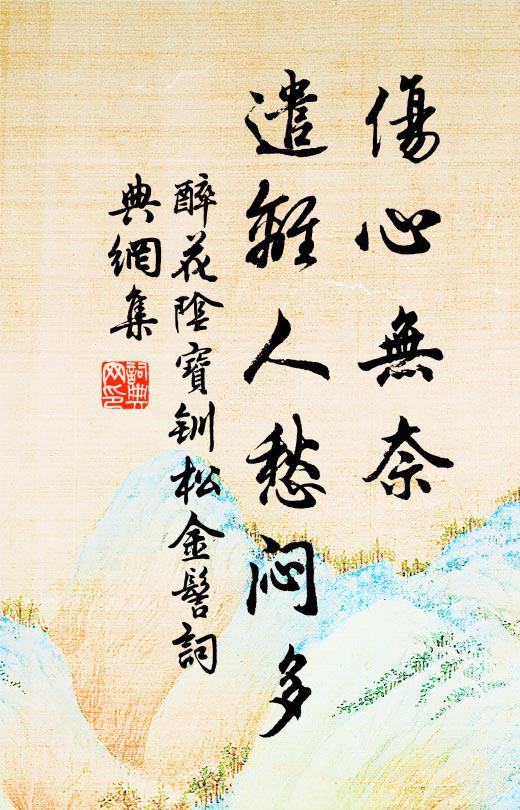 傷心無奈
遣離人愁悶多
醉花陰寶釧松金髻詞
典網集
詞典
网印